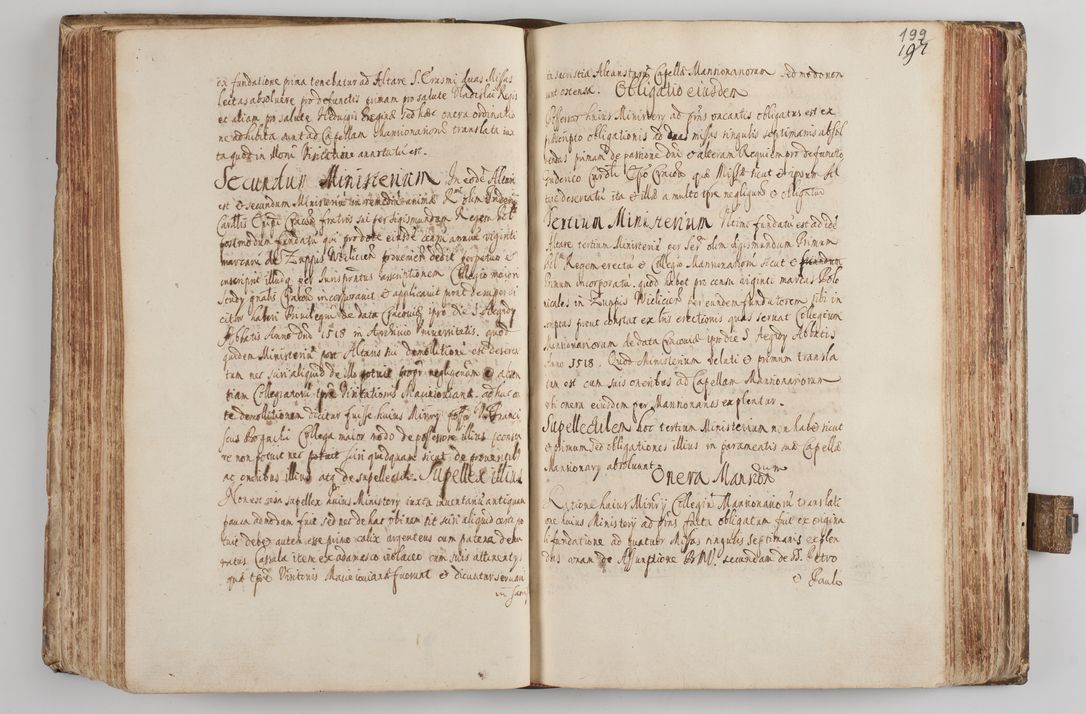 ex fundatione prima tenebatur ad Altare S. Erasmi duas Missas
lectas absoluere pro defunctis primam pro salute Vladislai Regis
et aliam pro salute Heduigis Reginæ sed hæc onera ordinatio
ne adhibita sunt ad Capellam Mansionariorum translata iux
ta quod in Visitatione annotatū est.
Secundum Ministerium In eodē Altari
est & secundum Ministeriū in remediū animæ olim
Cardlis Epi Cracou fratris sui per Sigismundum Regem Pol
postmodum fundatū qui pro dote eiusdē annuas viginti
marcas de Zuppis Wielicien prouenien dedit perpetuo &
inscripsit illudq per Collegio maiori
incorporauit & applicauit
haberi Priuilegiū de data Cracouiæ ipso die S Aegidy
Abbatis Anno Dni 1518 in Archiuio Vniuersitatis. quod
quidem Ministeriū post Altaris sui demolitionē est deser
tum nec sciri aliquid de illo potuit propr negligentiam
Collegiatorū tpre Visitationis Macieiouianæ. ad huc an
te demolitionem dicitur fuisse huius Minrÿ Franci
scus Collega maior modo de possessore illius
re non potuit nec potuit sciri quidquam sicut de prouentib
ac oneribus illius atq de supellectili. Supellex illius
Non est visa supellex huius Ministery iuxta inuentariū antiquum
pauca admodum fuit sed nec de hac vbinam sit sciri aliquid certi po
tuit debet autem esse primo calix argenteus cum patena deau
ratus Casula item ex adamasco violaceo cum suis attinentÿs
quæ tpre Visitonis Macieiouianæ fuerunt & dicuntur seruari
in Sacri

199
197
in sacristia Altaristarū Capellæ Mansionariorum sed modo non
sunt ostensæ. Obligatio eiusdem
Possessor huius Ministery ad prns vacantis obligatus est ex
præscripto obligationis duas missas singulis septimanis absol
uendas primam de passione Dni & alteram Requiem pro defuncto
Frederico Cardli Epo Cracou quæ Missæ sicut & ipsum Al
tare desertatū ita & illæ a multo tpre negligunt &
Tertium Ministerium Vltimo fundatū est ad idē
Altare tertium Ministeriū per Ser olim Sigismundum Primum
Pol Regem erectū & Collegio Mansionariorū sicut & secundum
Primum incorporatū. quod habet pro censu viginti marcas Polo
nicales in Zuppis Wielicien per eundem fundatorem sibi in
scriptas prout constat ex lris erectionis quas seruat Collegium
Mansionariorum de data Cracouiæ ipso die S Aegidy Abbatis
Anno 1518. Quod Ministerium velati & primum transla
tum est cum suis oneribus ad Capellam Mansionariorum
vbi onera eiusdem per Mansionarios explentur.
Supellectilem hoc tertium Ministerium non habet sicut
& primum sed obligationes illius in paramentis suæ Capellæ
Mansionary absoluunt. Onera Mansion
Ratione huius Minrÿ Collegiū Mansionariorū translati
one huius Ministery ad prns facta obligatum fuit ex origina
li fundatione ad quatuor Missas singulis septimanis explen
das vnam de Assumptione BMV. secundam de SS. Petro
& Paulo